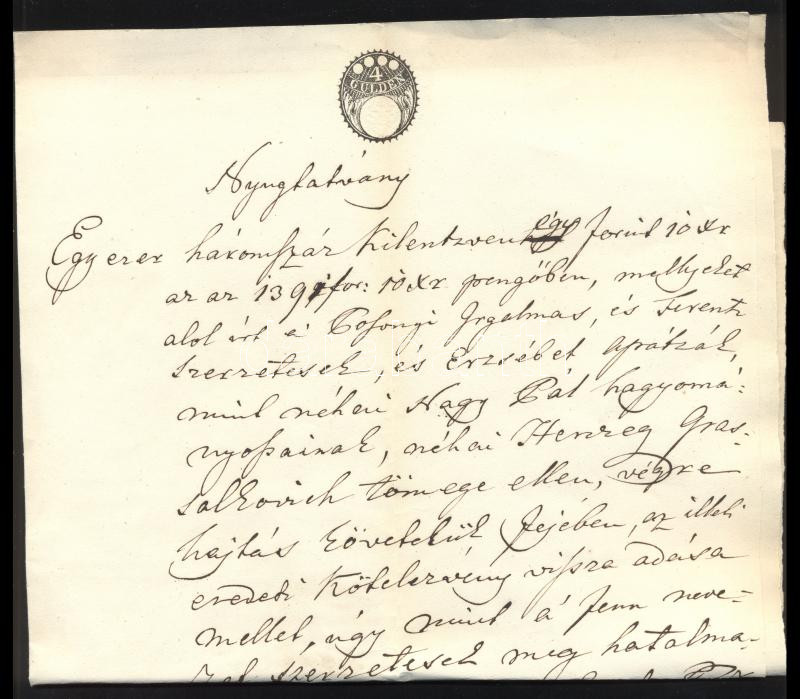 4
GULDEN
Nyugtatvány
Egy ezer háromszáz kilentzven egy forint 10 xr
az az 1391 for: 10 xr pengőben, mellyeket
alol irt á Posonyi Irgalmas, és Ferentz
szerzetesek, és Erzsébet Apátzák,
mint néhai Nagy Pál hagyomá:
nyossainak, néhai Herczeg Gras-
salkovich tömege ellen, végre
hajtás követelük fejében, az illeti
eredeti Kötelezvény vissza adása
mellet, úgy mint á fenn neve-
zet szerzetesek meg hatalma-